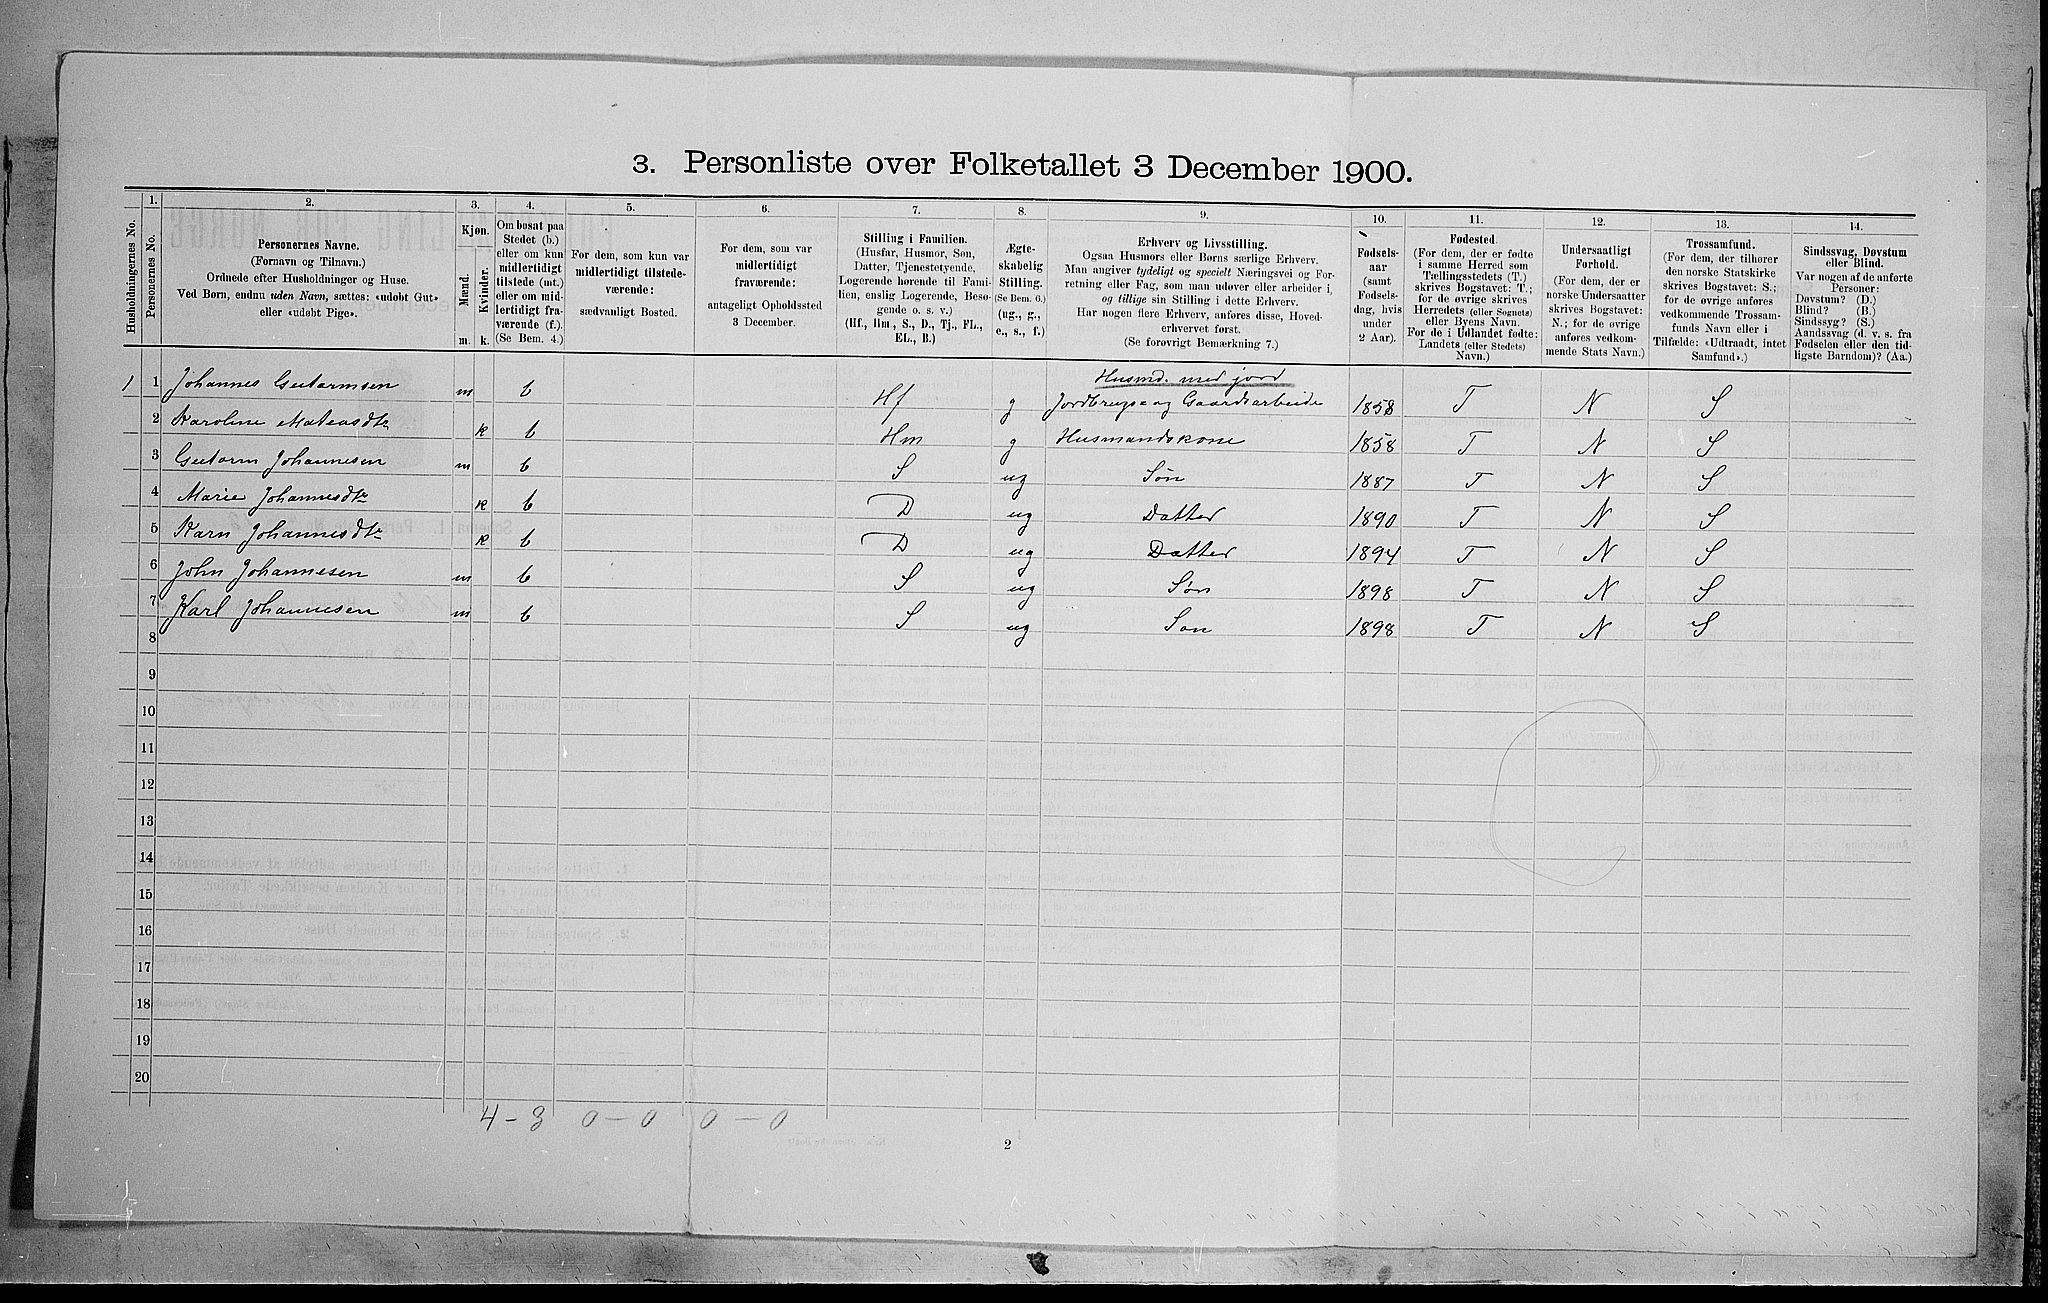 3. Personliste over Folketallet 3 December 1900.
Husholdningernes No.
1. Personernes No.
2. Personernes Navne. (Fornavn og Tilnavn.) Ordnede efter Husholdninger og Huse. Ved Børn, endnu uden Navn, sættes: «udøbt Gut» eller «udøbt Pige».
3. Kjøn. Mænd. m. Kvinder. k.
4. Om bosat paa Stedet (b.) eller om kun midlertidigt tilstede (mt.) eller om midlertidigt fraværende (f.). (Se Bem. 4.)
5. For dem, som kun var midlertidigt tilstedeværende: sædvanligt Bosted.
6. For dem, som var midlertidigt fraværende: antageligt Opholdssted 3 December.
7. Stilling i Familien. (Husfar, Husmor, Søn, Datter, Tjenestetyende, Logerende hørende til Familien, enslig Logerende, Besøgende o. s. v.) (Hf., Hm., S., D., Tj., FL., EL., B.)
8. Ægteskabelig Stilling. (Se Bem. 6.) (ug., g., e., s., f.)
9. Erhverv og Livsstilling. Ogsaa Husmors eller Børns særlige Erhverv. Man angiver tydeligt og specielt Næringsvei og Forretning eller Fag, som man udøver eller arbeider i, og tillige sin Stilling i dette Erhverv. Har nogen flere Erhverv, anføres disse, Hovederhvervet først. (Se forøvrigt Bemærkning 7.)
10. Fødselsaar (samt Fødselsdag, hvis under 2 Aar).
11. Fødested. (For dem, der er fødte i samme Herred som Tællingsstedets (T.) skrives Bogstavet: T.; for de øvrige skrives Herredets (eller Sognets) eller Byens Navn. For de i Udlandet fødte: Landets (eller Stedets) Navn.)
12. Undersaatligt Forhold. (For dem, der er norske Undersaatter skrives Bogstavet: N.; for de øvrige anføres vedkommende Stats Navn.)
13. Trossamfund. (For dem, der tilhører den norske Statskirke skrives Bogstavet: S.; for de øvrige anføres vedkommende Trossamfunds Navn eller i Tilfælde: «Udtraadt, intet Samfund».)
14. Sindssvag, Døvstum eller Blind. Var nogen af de anførte Personer: Døvstum? (D.) Blind? (B.) Sindssyg? (S.) Aandssvag (d. v. s. fra Fødselen eller den tidligste Barndom)? (Aa.)
Husmd. med jord
1 1 Johannes Guttormsen m b Hf g Jordbrug og Gaardsarbeide 1858 T N S
2 Karoline Mateasdtr k b Hm g Husmandskone 1858 T N S
3 Guttorm Johannesen m b S ug Søn 1887 T N S
4 Marie Johannesdtr k b D ug Datter 1890 T N S
5 Karn Johannesdtr k b D ug Datter 1894 T N S
6 John Johannesen m b S ug Søn 1898 T N S
7 Karl Johannesen m b S ug Søn 1898 T N S
8
9
10
11
12
13
14
15
16
17
18
19
20
4 - 3 0 - 0 0 - 0
2